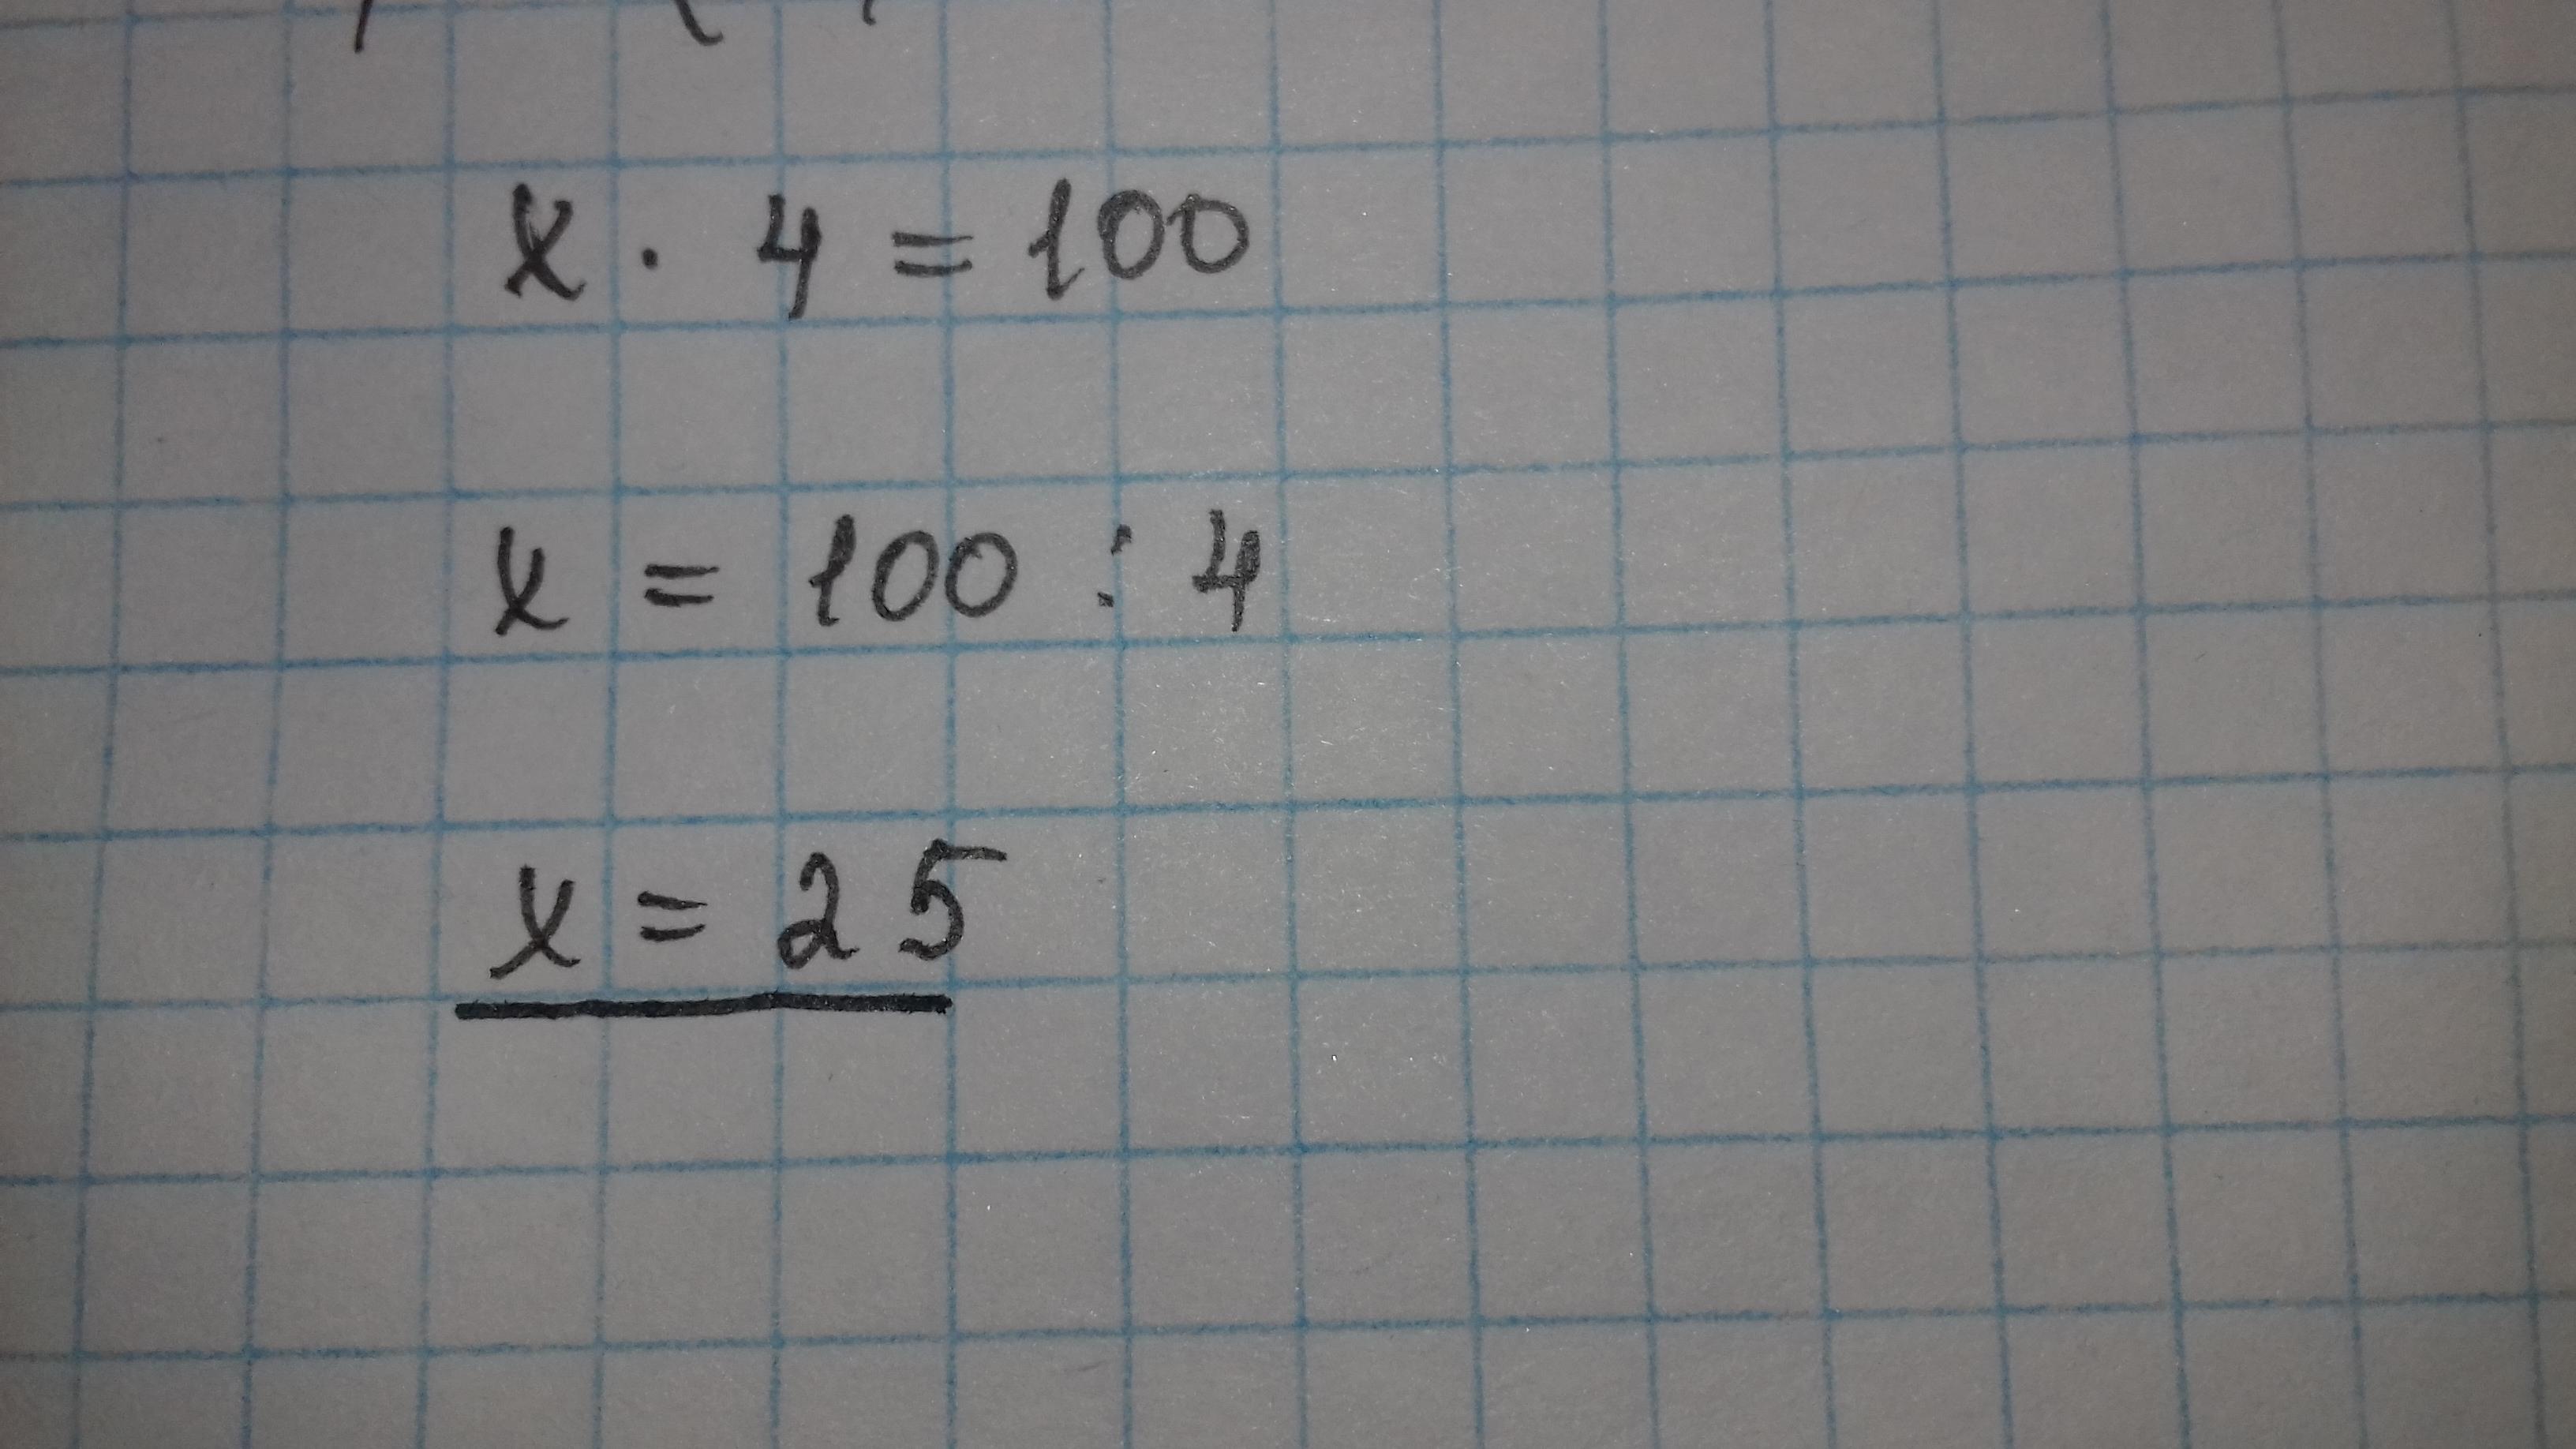 x · 4 = 100
x = 100 : 4
x = 25